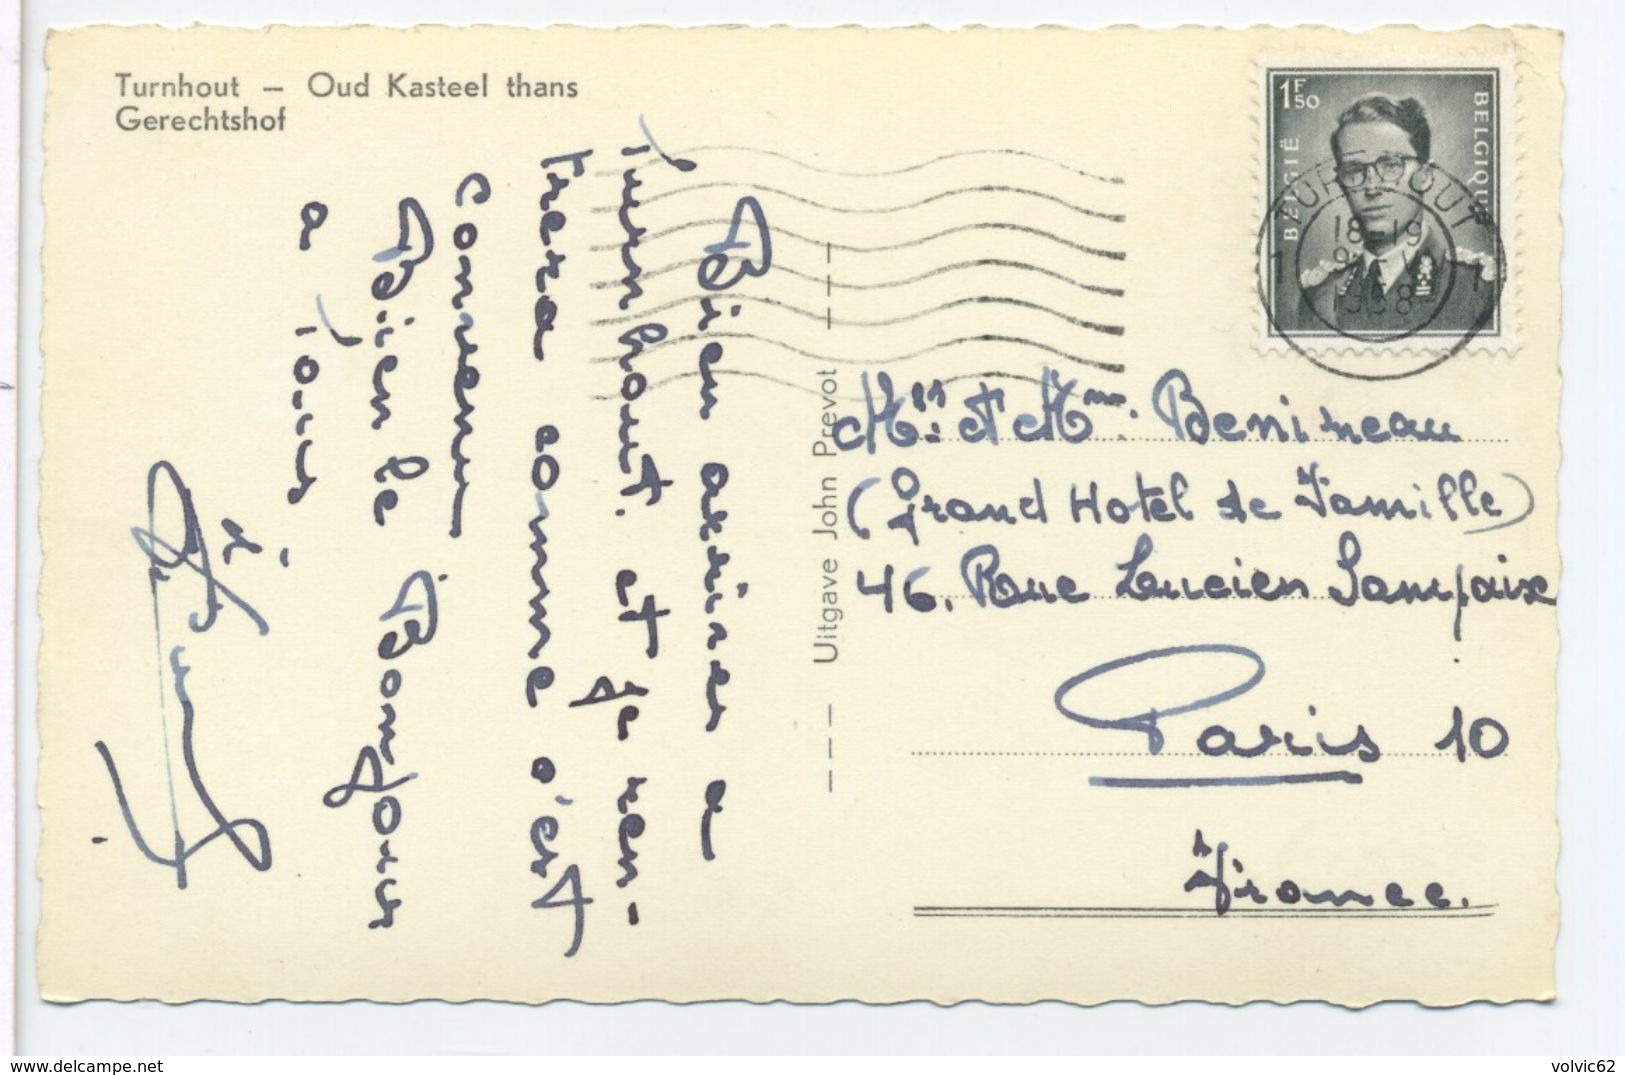 Turnhout – Oud Kasteel thans
Gerechtshof
Bien arrivé a
Turnhout. et je ren-
trera comme c'est
convenu
Bien le Bonjour
a Tous
Uitgave John Prevot
1F50
BELGIË
BELGIQUE
TURNHOUT
18-19
1958
1
1
Mrs et Mme. Benineau
(Grand Hotel de Famille)
46. Rue Lucien Sampaix
Paris 10
France.
delcampe.net
volvic62